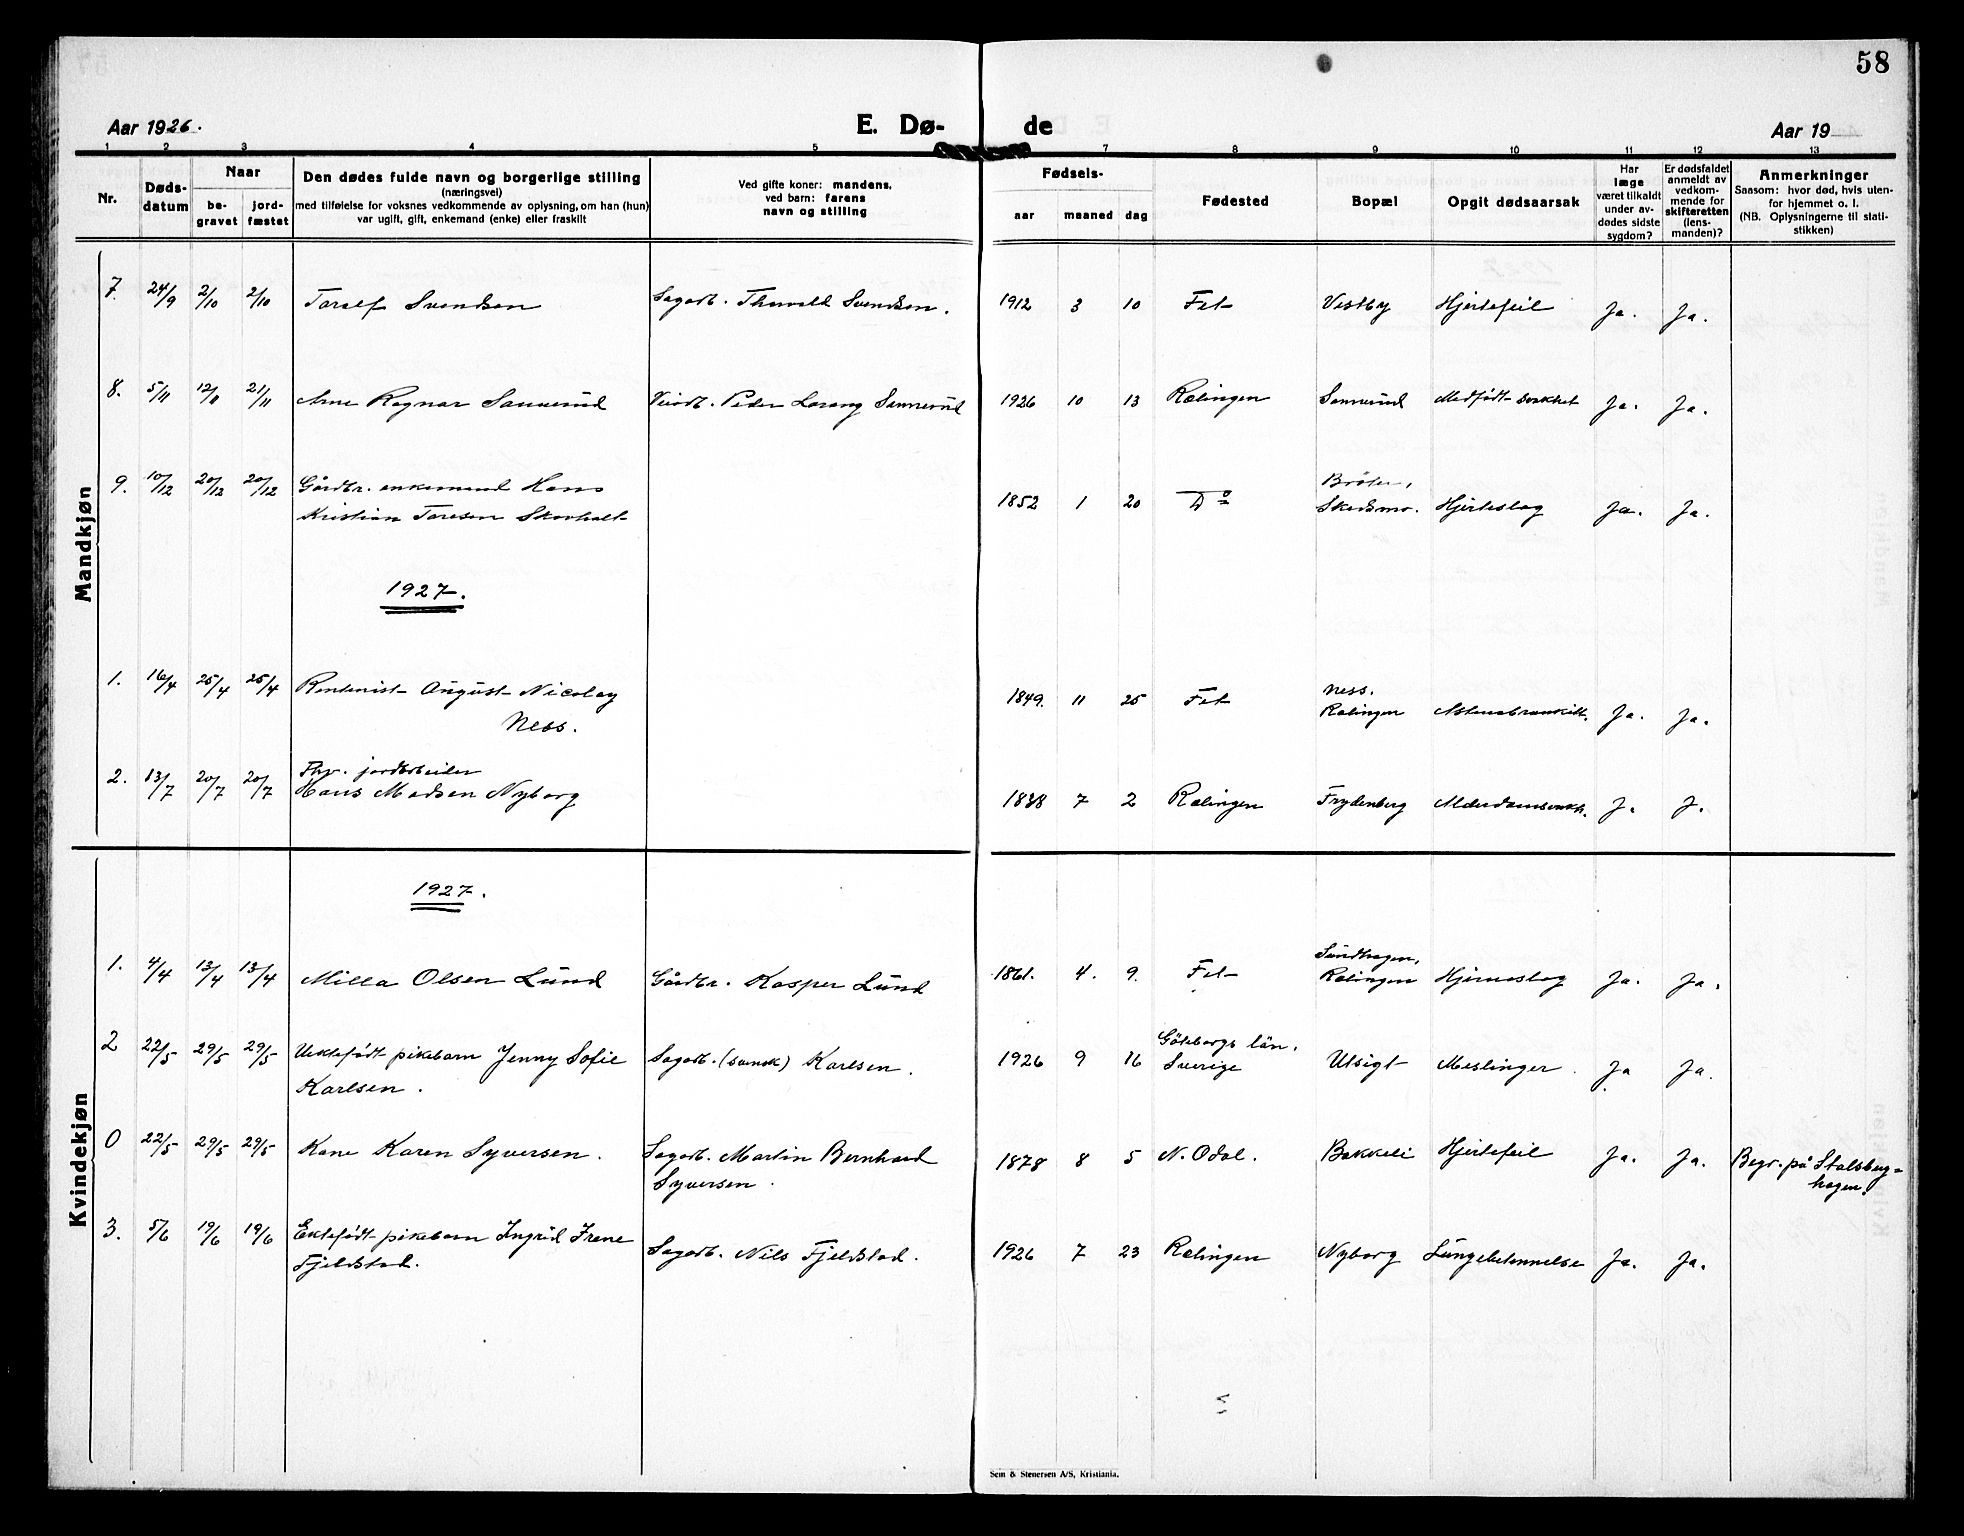 58
Aar 1926.
E. Dø-
de
Aar 19
1 2 3 4 5 7 8 9 10 11 12 13
Nr.
Døds-
datum
Naar
be-
gravet
jord-
fæstet
Den dødes fulde navn og borgerlige stilling
(næringsvei)
med tilføielse for voksnes vedkommende av oplysning, om han (hun)
var ugift, gift, enkemand (enke) eller fraskilt
Ved gifte koner: mandens,
ved barn: farens
navn og stilling
Fødsels-
aar maaned dag
Fødested
Bopæl
Opgit dødsaarsak
Har
læge
været tilkaldt
under av-
dødes sidste
sygdom?
Er dødsfaldet
anmeldt av
vedkom-
mende for
skifteretten
(lens-
manden)?
Anmerkninger
Saasom: hvor død, hvis uten-
for hjemmet o. l.
(NB. Oplysningerne til stati-
stikken)
Mandkjøn
7. 24/9 2/10 2/10 Toralf Svendsen Sagarb. Thorvald Svendsen. 1912 3 10 Fet Vestby Hjertefeil Ja. Ja.
8. 5/11 12/11 21/11 Arne Ragnar Sannerud Veiarb. Peder Lorang Sannerud 1926 10 13 Rælingen Sannerud Medfødt svakhet Ja. Ja.
9. 10/12 20/12 20/12 Gårdbr. enkemand Hans
Kristian Toresen Skovholt 1852 1 20 Do Bråter,
Skedsmo. Hjerteslag Ja. Ja.
1927.
1. 16/4 25/4 25/4 Rentenist August Nicolay
Ness. 1849. 11 25 Fet Ness.
Rælingen Ja. Ja.
2. 13/7 20/7 20/7 Fhv. jordarbeider
Hans Madsen Nyborg 1838 7 2 Rælingen Frydenberg Alderdomssvakh. J. J.
Kvindekjøn
1927.
1. 4/4 13/4 13/4 Milla Olsen Lund Gårdbr. Kasper Lund 1861. 4. 9. Fet Sundhagen,
Rælingen Hjerneslag Ja. Ja.
2 22/5 29/5 29/5 Uektefødt pikebarn Jenny Sofie
Karlsen. Sagarb. (svensk) Karlsen. 1926 9 16 Göteborgs län.
Sverige Utsigt Meslinger. Ja Ja.
0 22/5 29/5 29/5 Kone Karen Syversen. Sagarb. Martin Bernhard
Syversen. 1878 8 5 N. Odal. Bakkeli Hjertefeil Ja. Ja. Begr. på Stalsberg-
hagen.
3. 5/6 19/6 19/6 Ektefødt pikebarn Ingrid Irene
Fjeldstad. Sagarb. Nils Fjeldstad. 1926 7 23 Rælingen Nyborg Lungebetennelse Ja. Ja.
Sem & Stenersen A/S, Kristiania.